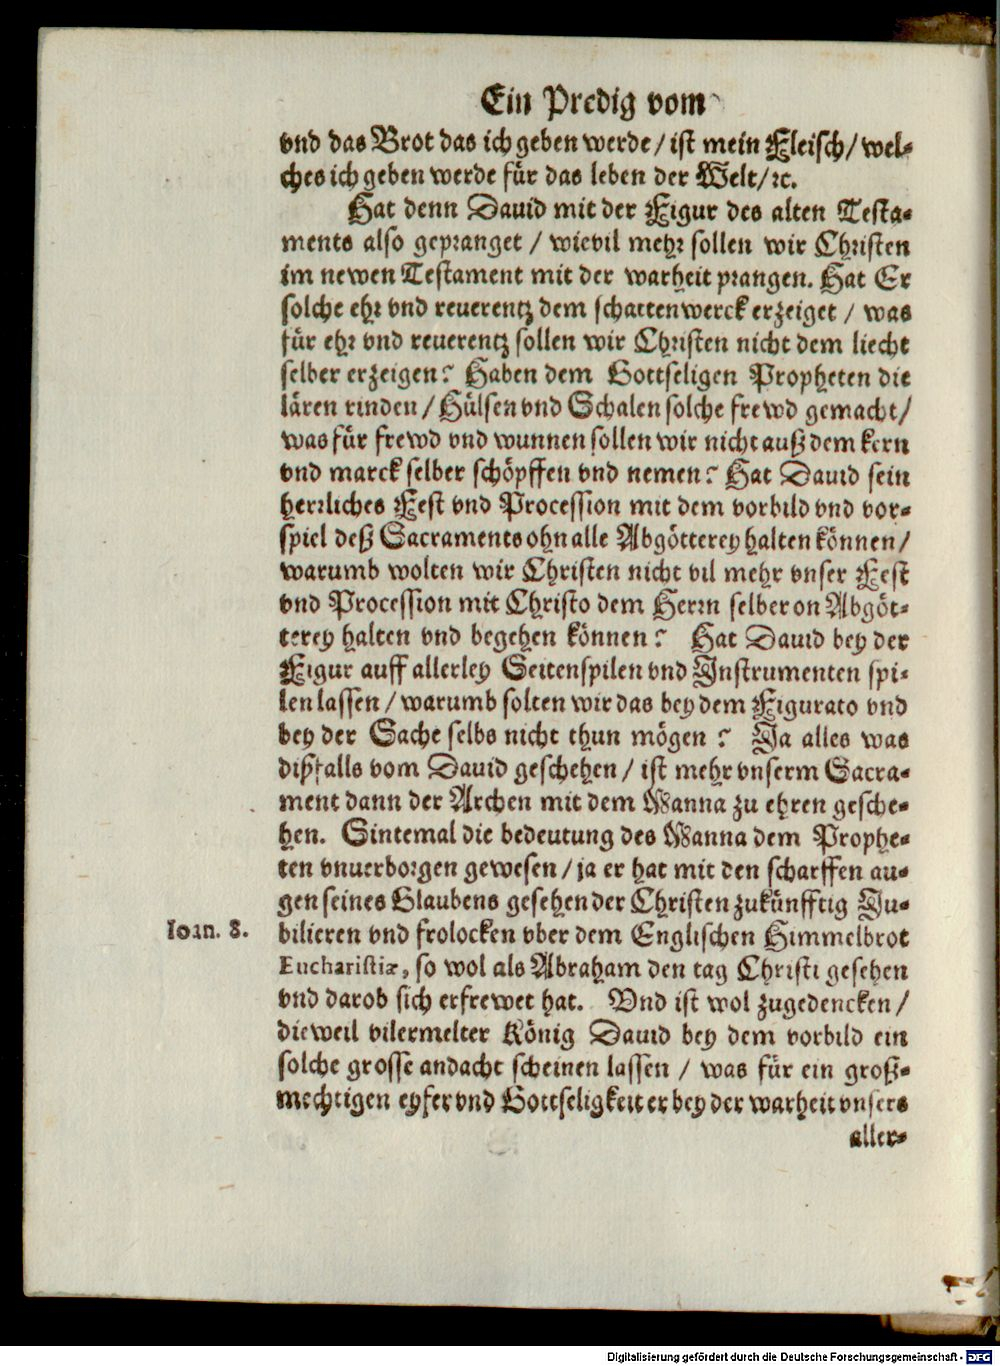 Ein Predig vom
vnd das Brot das ich geben werde / ist mein Fleisch / wel-
ches ich geben werde für das leben der Welt / ꝛc.
Hat denn Dauid mit der Figur des alten Testa-
ments also gepranget / wievil mehr sollen wir Christen
im newen Testament mit der warheit prangen. Hat Er
solche ehr vnd reuerentz dem schattenwerck erzeiget / was
für ehr vnd reuerentz sollen wir Christen nicht dem liecht
selber erzeigen? Haben dem Gottseligen Propheten die
lären rinden / Hülsen vnd Schalen solche frewd gemacht /
was für frewd vnd wunnen sollen wir nicht auß dem kern
vnd marck selber schöpffen vnd nemen? Hat Dauid sein
herrliches Fest vnd Procession mit dem vorbild vnd vor-
spiel deß Sacraments ohn alle Abgötterey halten können /
warumb wolten wir Christen nicht vil mehr vnser Fest
vnd Procession mit Christo dem Herrn selber on Abgöt-
terey halten vnd begehen können? Hat Dauid bey der
Figur auff allerley Seitenspilen vnd Instrumenten spi-
len lassen / warumb solten wir das bey dem Figurato vnd
bey der Sache selbs nicht thun mögen? Ja alles was
dißfalls vom Dauid geschehen / ist mehr vnserm Sacra-
ment dann der Archen mit dem Manna zu ehren gesche-
hen. Sintemal die bedeutung des Manna dem Prophe-
ten vnuerborgen gewesen / ja er hat mit den scharffen au-
gen seines Glaubens gesehen der Christen zukünfftig Ju-
Ioan. 8. bilieren vnd frolocken vber dem Englischen Himmelbrot
Eucharistiæ, so wol als Abraham den tag Christi gesehen
vnd darob sich erfrewet hat. Vnd ist wol zugedencken /
dieweil vilermelter König Dauid bey dem vorbild ein
solche grosse andacht scheinen lassen / was für ein groß-
mechtigen eyfer vnd Gottseligkeit er bey der warheit vnsers
aller-
Digitalisierung gefördert durch die Deutsche Forschungsgemeinschaft - DFG